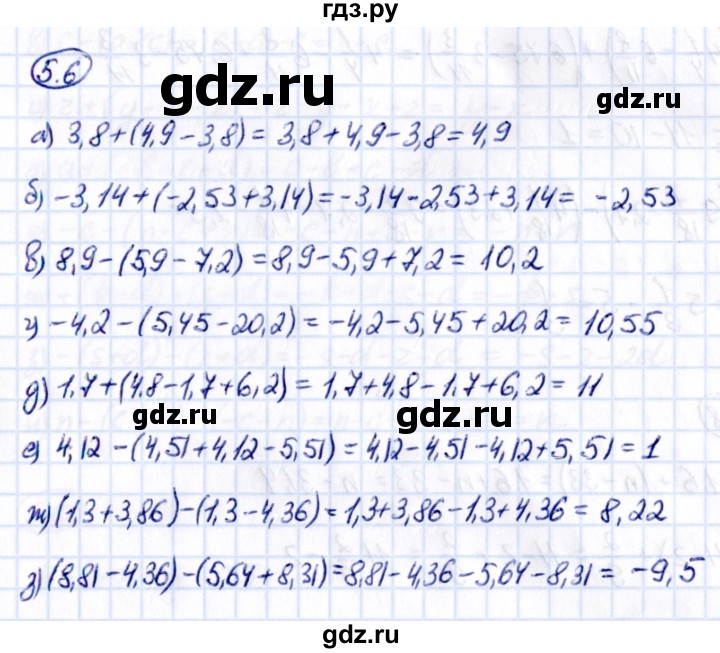 гдз.ру
5.6
gdz.ru
а) 3,8+(4,9-3,8)= 3,8+4,9-3,8=4,9
б) -3,14+(-2,53+3,14)=-3,14-2,53+3,14= -2,53
в) 8,9-(5,9-7,2)=8,9-5,9+7,2= 10,2
г) -4,2-(5,45-20,2)= -4,2-5,45+20,2= 10,55
д) 1,7+(4,8-1,7+6,2)= 1,7+4,8-1,7+6,2= 11
gdz.ru
gdz.ru
е) 4,12-(4,51+4,12-5,51)= 4,12-4,51-4,12+5,51=1
ж) (1,3+3,86)-(1,3-4,36)=1,3+3,86-1,3+4,36= 8,22
з) (8,81-4,36)-(5,64+8,31)=8,81-4,36-5,64-8,31= -9,5
gdz.ru